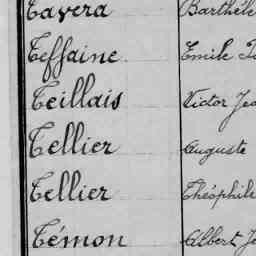 Tavera Barthéle
Teffaine Emile
Teillais Victor Jea
Tellier Auguste
Tellier Théophile
Témon Albert Je